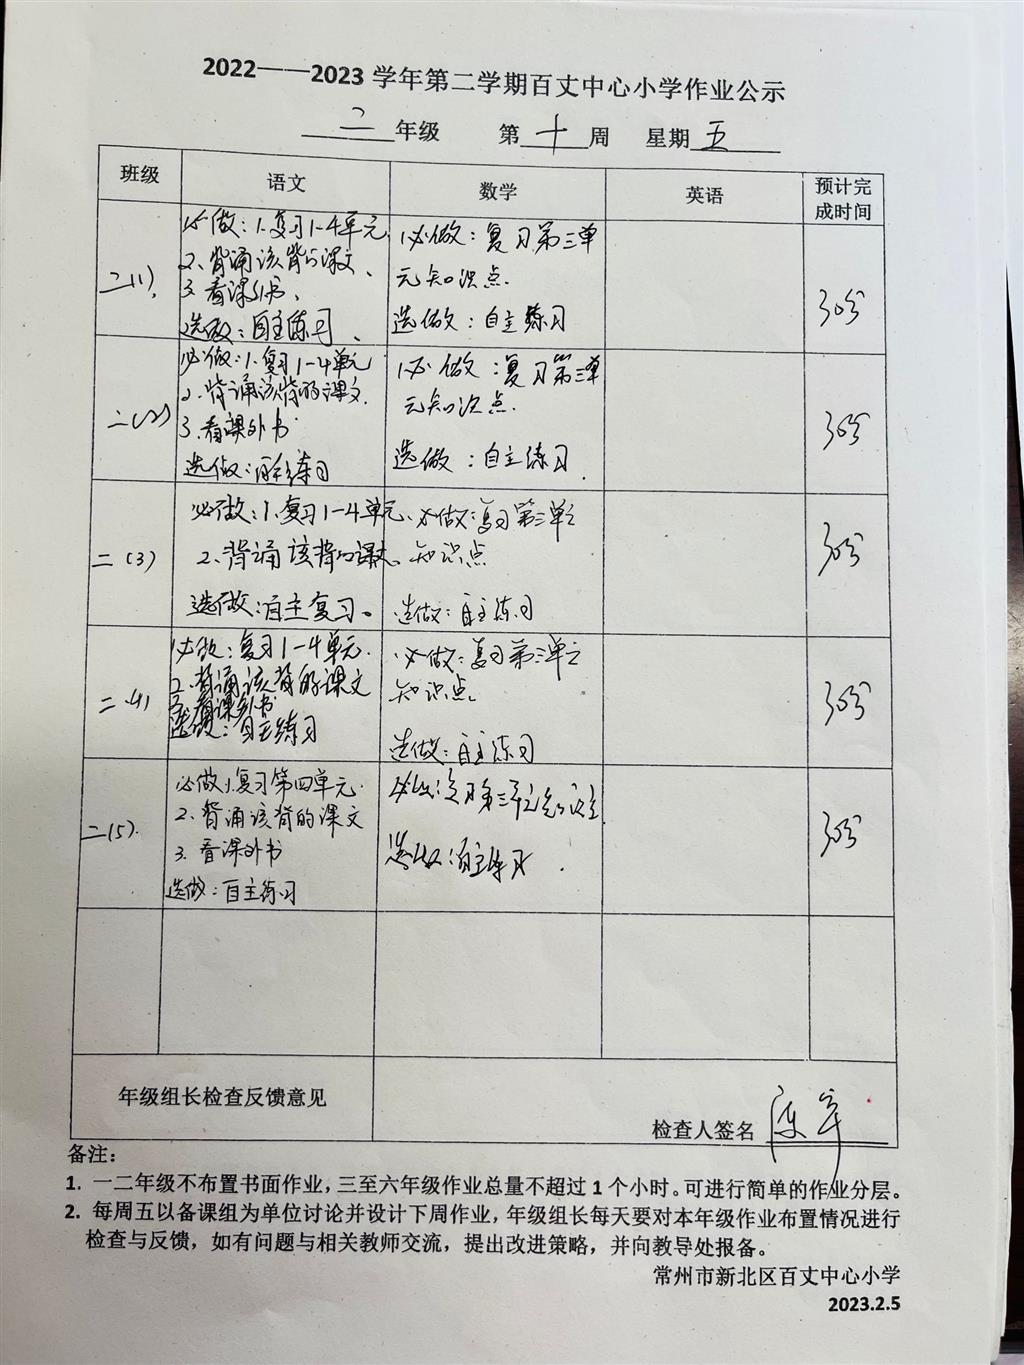 2022——2023 学年第二学期百丈中心小学作业公示
二 年级 第 十 周 星期 五
班级 语文 数学 英语 预计完成时间
二(1)
必做：1.复习1-4单元
2、背诵该背的课文、
3、看课外书、
选做：自主练习、
必做：复习第三单
元知识点.
选做：自主练习
30分
二(2)
必做：1.复习1-4单元
2.背诵该背的课文.
3.看课外书
选做：自主练习
必做：复习第三单
元知识点.
选做：自主练习.
30分
二(3)
必做：1.复习1-4单元.
2、背诵该背的课文.
选做：自主复习。
必做：复习第三单元
知识点
选做：自主练习
30分
二(4)
必做：复习1-4单元.
2.背诵该背的课文
3.看课外书
选做：自主练习
必做：复习第三单元
知识点
选做：自主练习
30分
二(5).
必做1.复习第四单元.
2.背诵该背的课文
3.看课外书
选做：自主练习
必做：复习第三单元知识点
选做：自主练习.
30分
年级组长检查反馈意见
检查人签名
备注：
1. 一二年级不布置书面作业，三至六年级作业总量不超过 1 个小时。可进行简单的作业分层。
2. 每周五以备课组为单位讨论并设计下周作业，年级组长每天要对本年级作业布置情况进行
检查与反馈，如有问题与相关教师交流，提出改进策略，并向教导处报备。
常州市新北区百丈中心小学
2023.2.5